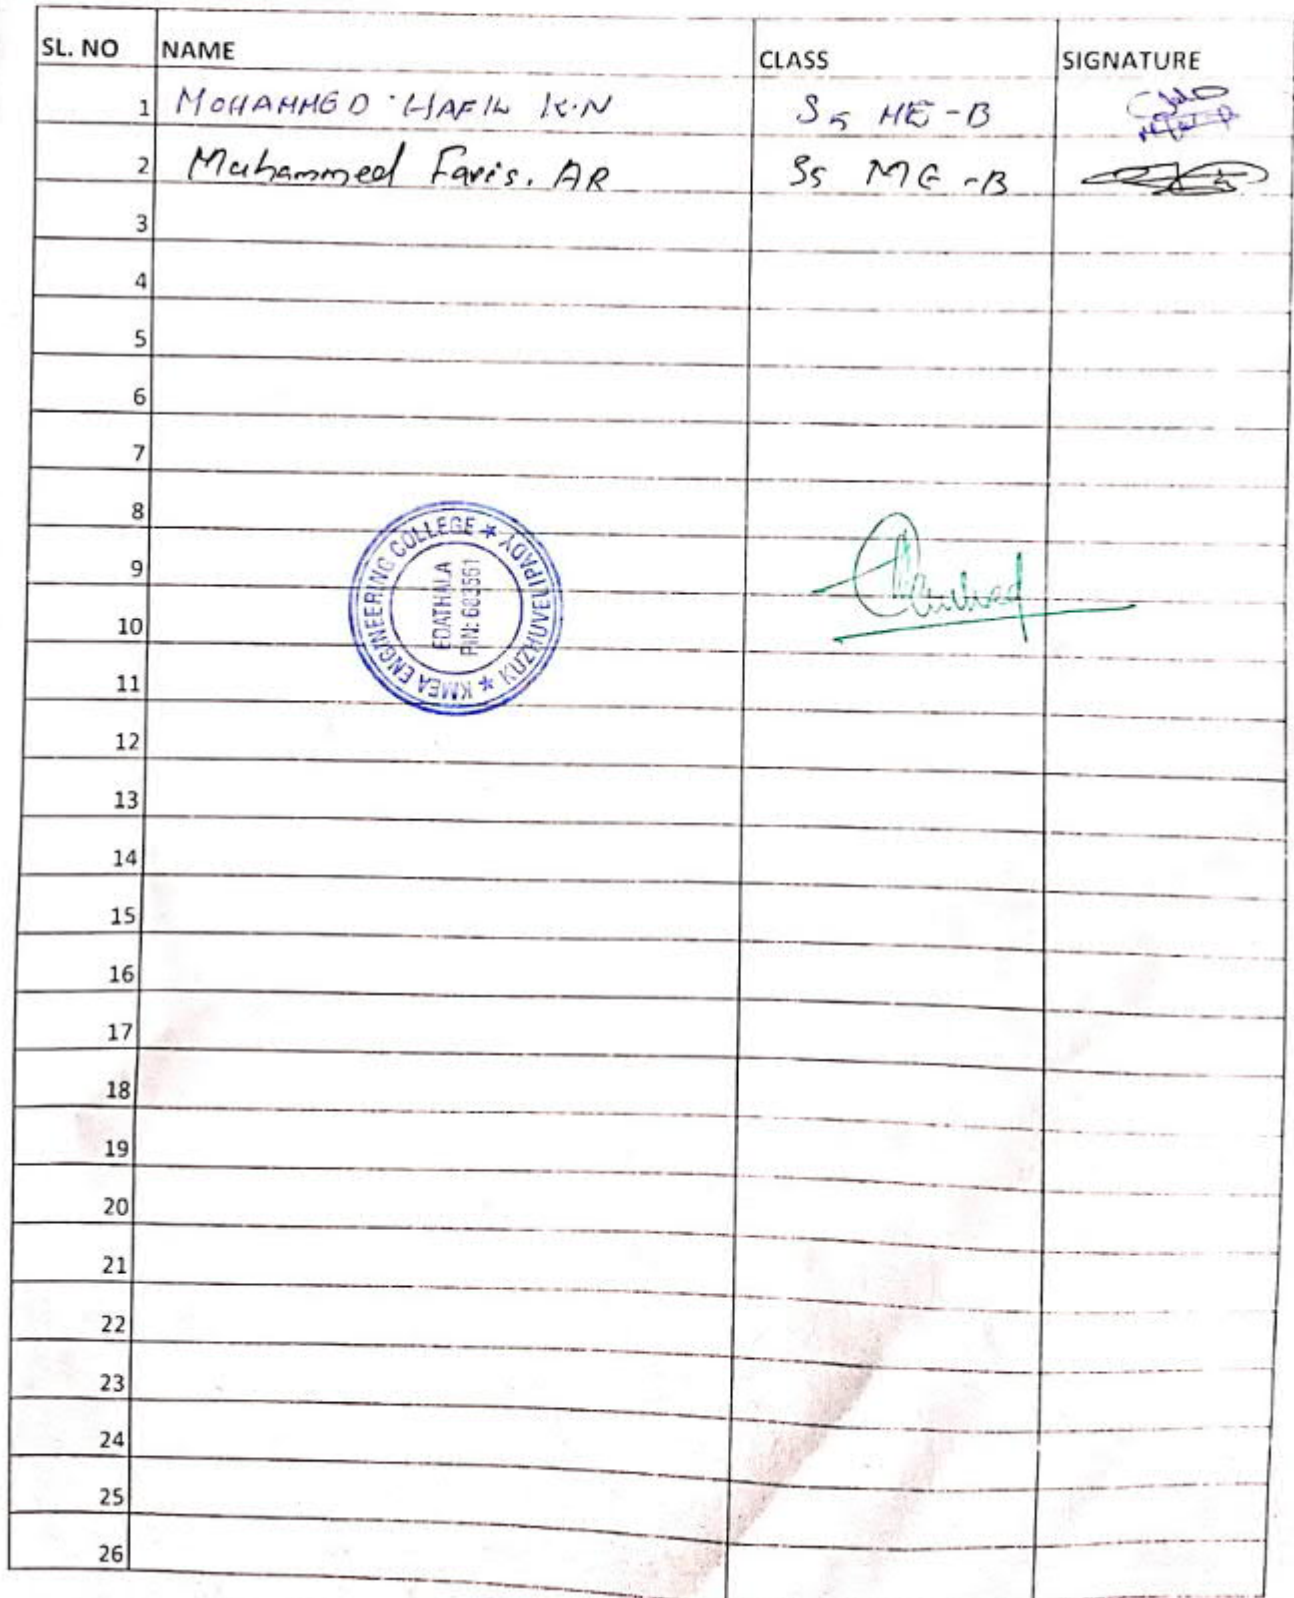 SL. NO NAME CLASS SIGNATURE
1 MOHAMMED HAFIL K.N S5 ME-B
2 Muhammed Faris. AR S5 ME-B
3
4
5
6
7
8
9
10
11
12
13
14
15
16
17
18
19
20
21
22
23
24
25
26
KMEA ENGINEERING COLLEGE * KUZHUVELIPADY *
EDATHALA
PIN: 683561